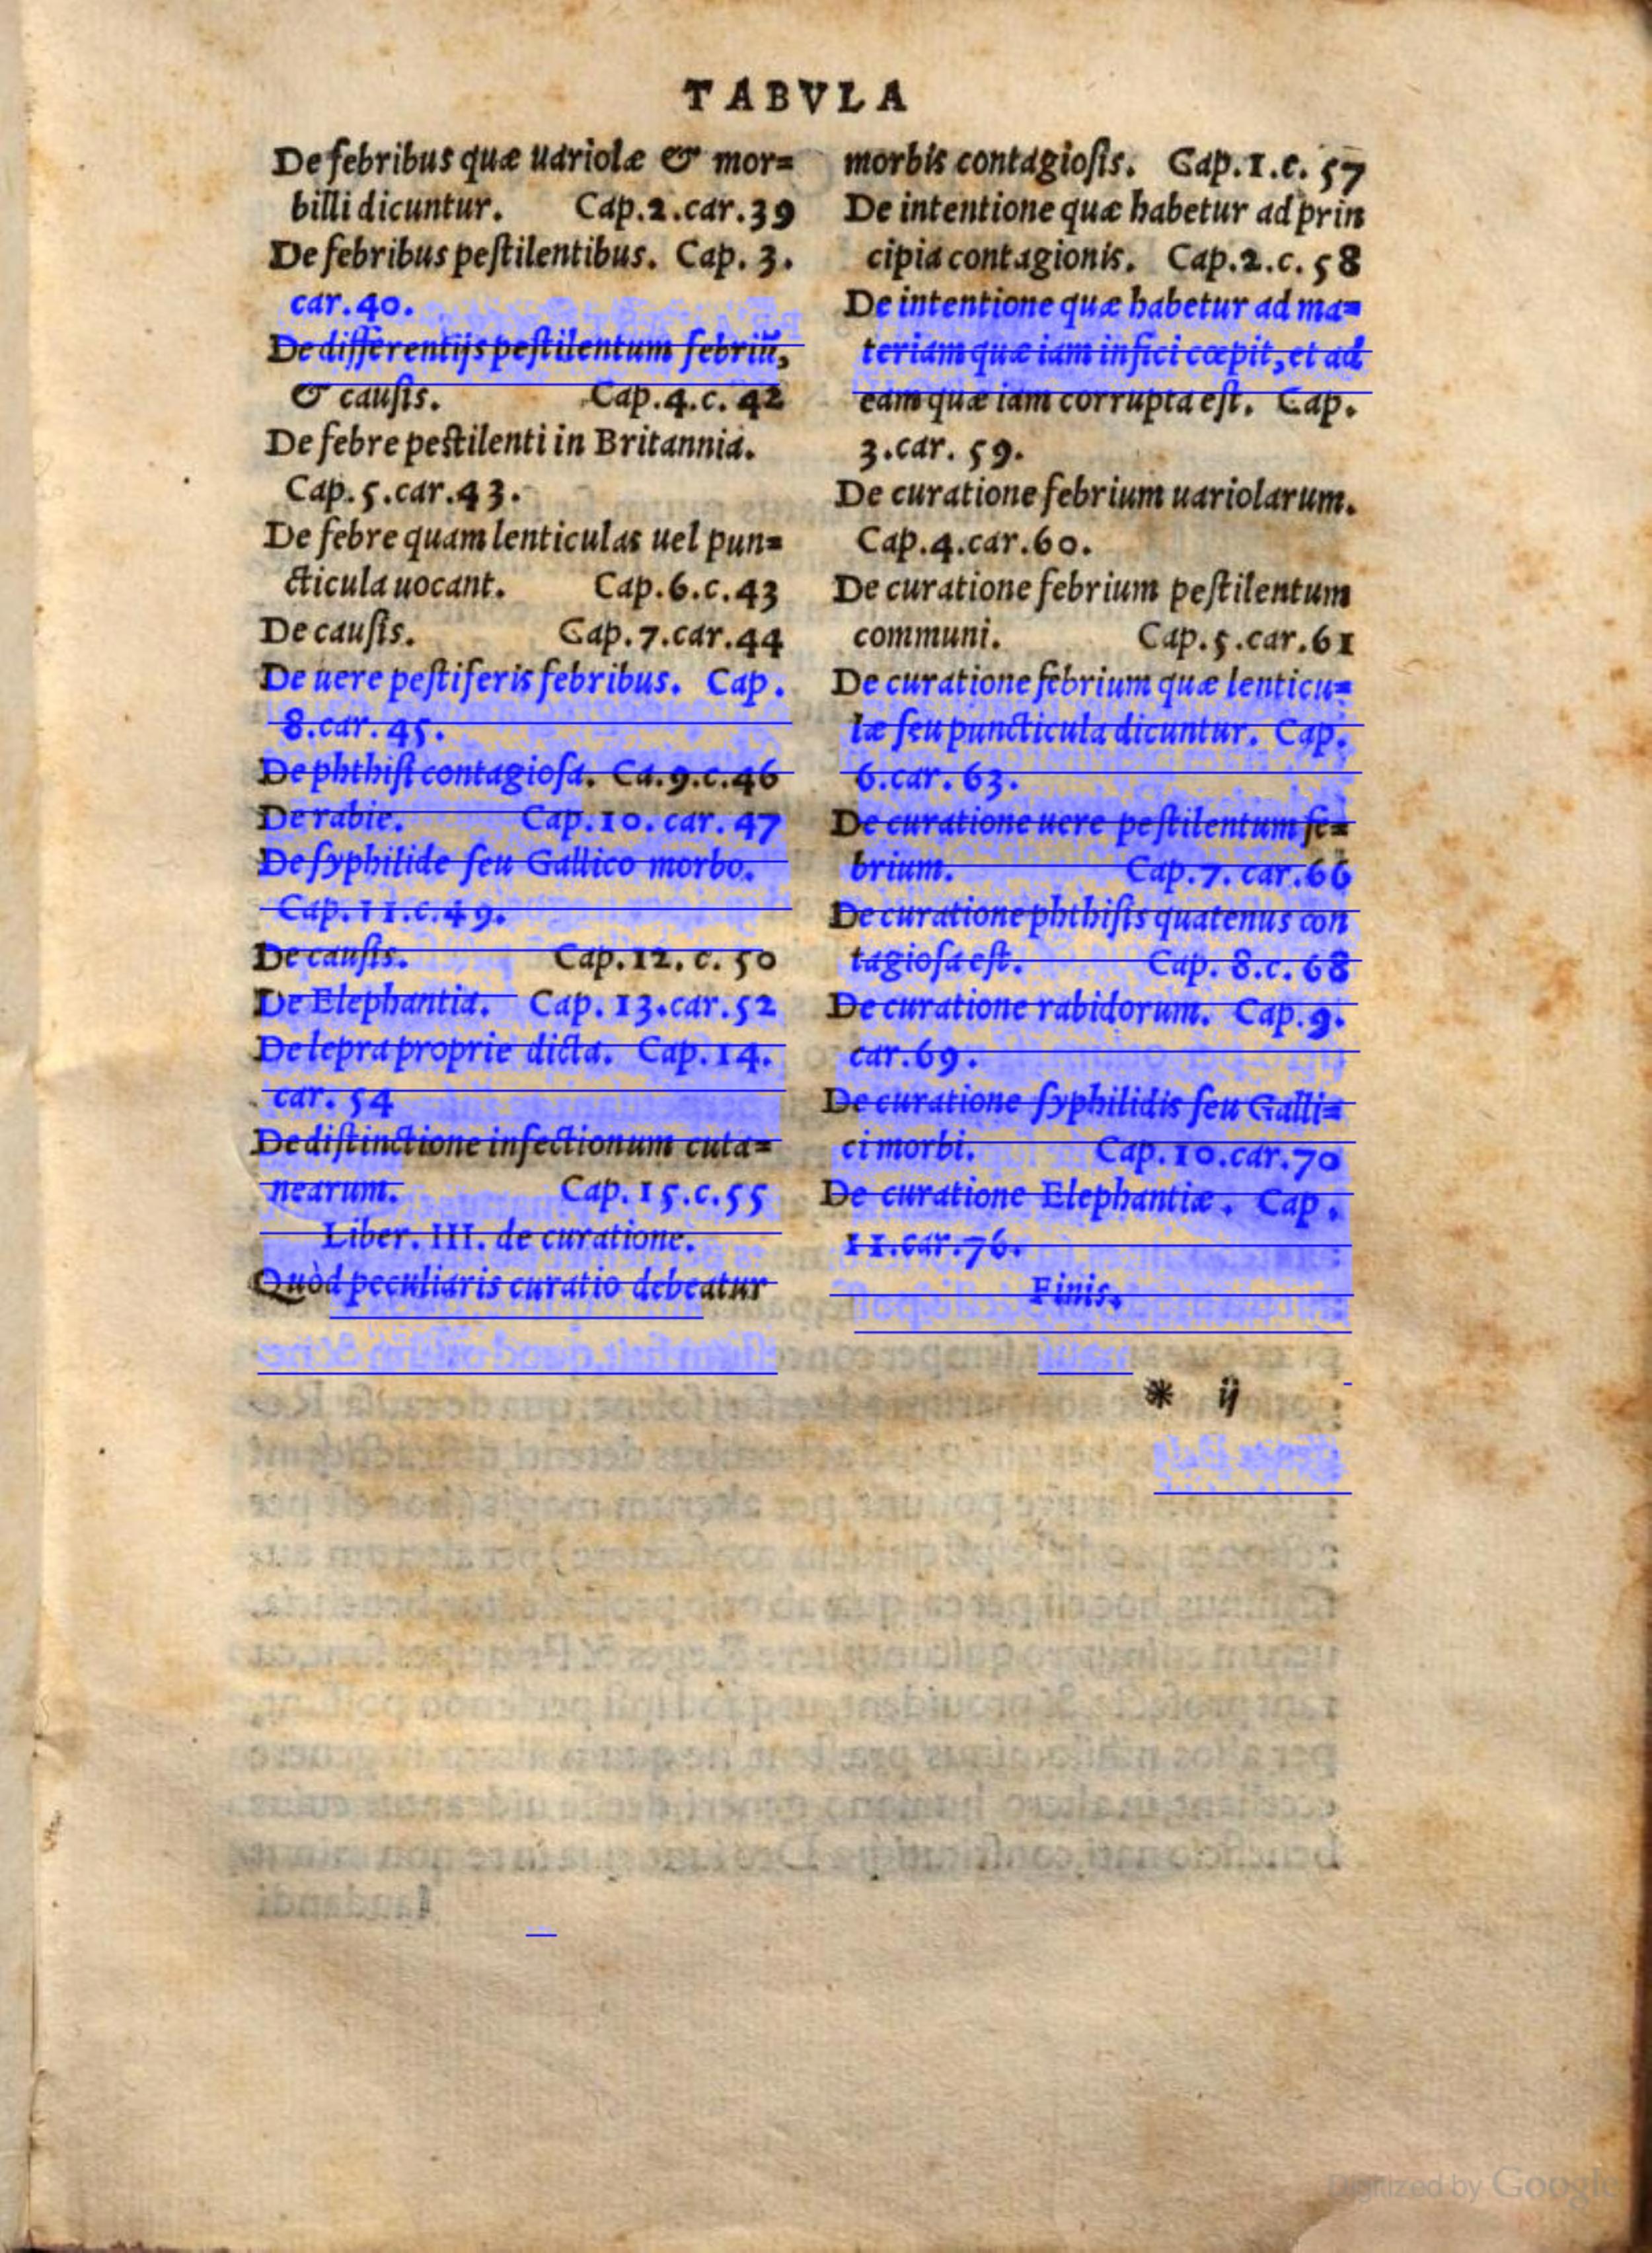 TABVLA
De febribus quæ uariolæ & mor=
billi dicuntur. Cap.2.car.39
De febribus peſtilentibus. Cap. 3.
car.40.
De differentijs peſtilentum febriū,
& cauſis. Cap.4.c. 42
De febre peſtilenti in Britannia.
Cap.5.car.43.
De febre quam lenticulas uel pun=
cticula uocant. Cap.6.c.43
De cauſis. Cap.7.car.44
De uere peſtiferis febribus. Cap.
8.car.45.
De phthiſi contagioſa. Ca.9.c.46
De rabie. Cap.10.car.47
De ſyphilide ſeu Gallico morbo.
Cap.11.c.49.
De cauſis. Cap.12.c.50
De Elephantia. Cap.13.car.52
De lepra proprie dicta. Cap.14.
car. 54
De diſtinctione infectionum cuta=
nearum. Cap.15.c.55
Liber. III. de curatione.
Quòd peculiaris curatio debeatur
morbis contagioſis. Cap.1.c.57
De intentione quæ habetur ad prin
cipia contagionis. Cap.2.c.58
De intentione quæ habetur ad ma=
teriam quæ iam infici cœpit, et ad
eam quæ iam corrupta eſt. Cap.
3.car. 59.
De curatione febrium uariolarum.
Cap.4.car.60.
De curatione febrium peſtilentum
communi. Cap.5.car.61
De curatione febrium quæ lenticu=
læ ſeu puncticula dicuntur. Cap.
6.car.63.
De curatione uere peſtilentum fe=
brium. Cap.7.car.66
De curatione phthiſis quatenus con
tagioſa eſt. Cap. 8.c. 68
De curatione rabidorum. Cap.9.
car.69.
De curatione ſyphilidis ſeu Galli=
ci morbi. Cap.10.car.70
De curatione Elephantiæ. Cap.
11.car.76.
Finis.
* ij
Digitized by Google